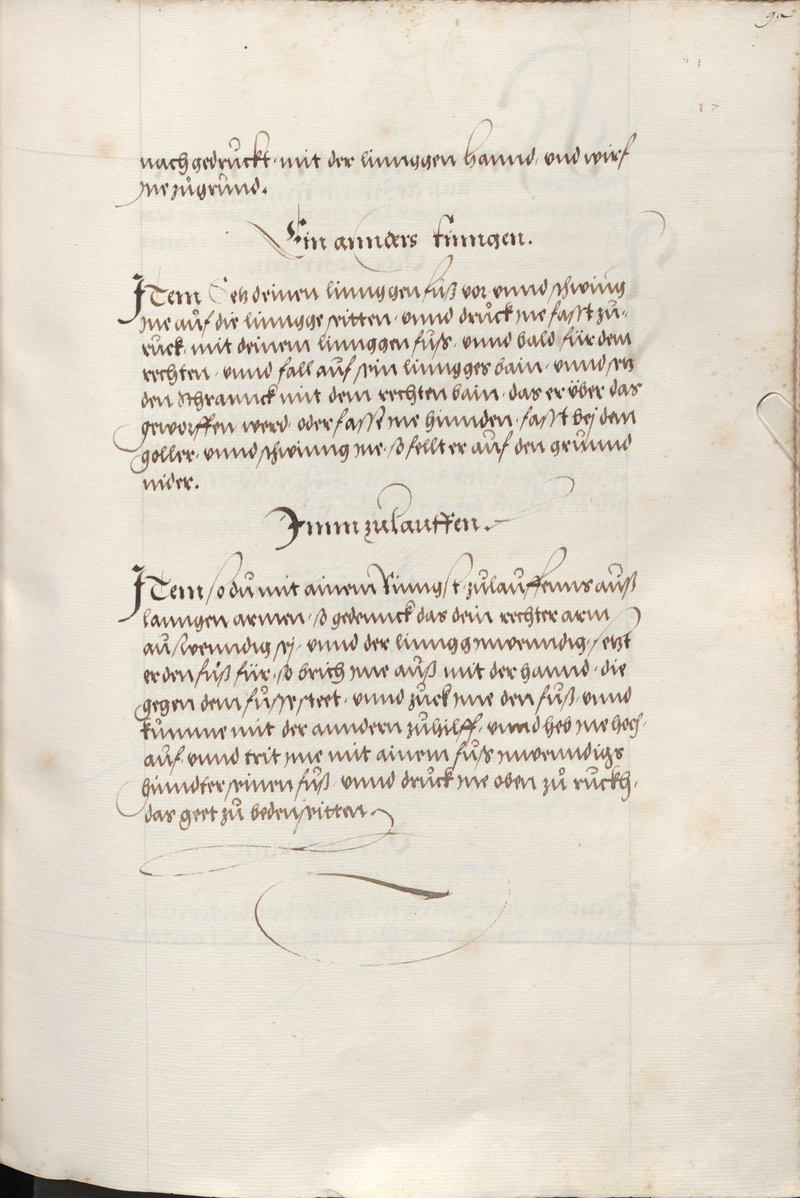 95
nach gedruckt · mit der linnggen hannd · vnd wirf
jne zu grund.
Ein annders Ringen.
ITem Setz deinen linnggen fuß vor vnnd schwing
jne auf die linngge seitten · vnnd druck jne fasst zu-
ruck · mit deinem linnggen fuß · vnnd bald für den
rechten · vnnd fall auf sein linngges bain · vnnd setz
den schrannck mit dem rechten bain · das er über das
geworffen werd · oder fasse jne hinnden · fasst bej dem
goller · vnnd schwinng jne · so fellt er auf den grunnd
nider.
Im zulauffen.
ITem so du mit ainem Ringst · zulauffenns auß
lanngen armen · so gedennck das dein rechter arm
auswenndig sej · vnnd der linngg jnwenndig · setzt
er den fuß für · so brich jme auß mit der hannd · die
gegen dem fuss steet · vnnd zuck jme den fuß · vnnd
kumme mit der anndern zuhilff · vnnd heb jne hoch
auf · vnnd trit jme mit ainem fuß jnwenndigs
hinndter seinen fuß · vnnd druck jne oben zu ruckh ·
das geet zu beden seitten